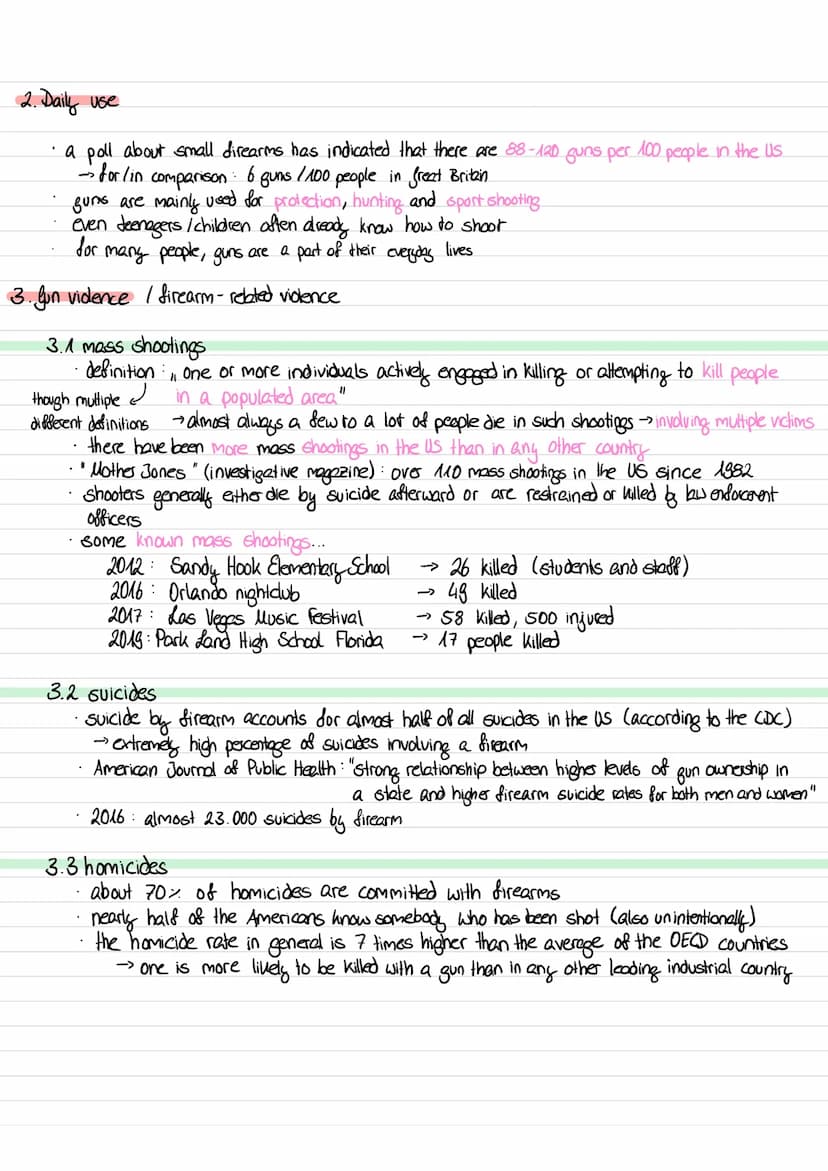 2. Daily use
· a poll about small firearms has indicated that there are 88-120 guns per 100 people in the US
→ for/in comparison : 6 guns /100 people in Great Britain
· guns are mainly used for protection, hunting and sport shooting
· even teenagers /children often already know how to shoot
· for many people, guns are a part of their everyday lives
3. Gun violence / firearm-related violence
3.1 mass shootings
· definition : „ one or more individuals actively engaged in killing or attempting to kill people
though multiple ↙ in a populated area"
different definitions → almost always a few to a lot of people die in such shootings → involving multiple victims
· there have been more mass shootings in the US than in any other country
· "Mother Jones" (investigative magazine) : over 110 mass shootings in the US since 1982
· shooters generally either die by suicide afterward or are restrained or killed by law enforcement
officers
· some known mass shootings...
2012 : Sandy Hook Elementary School → 26 killed (students and staff)
2016 : Orlando nightclub → 49 killed
2017 : Las Vegas Music Festival → 58 killed, 500 injured
2019 : Park Land High School Florida → 17 people killed
3.2 suicides
· suicide by firearm accounts for almost half of all suicides in the US (according to the CDC)
→ extremely high percentage of suicides involving a firearm
· American Journal of Public Health : "strong relationship between higher levels of gun ownership in
a state and higher firearm suicide rates for both men and women"
· 2016 : almost 23.000 suicides by firearm
3.3 homicides
· about 70% of homicides are committed with firearms
· nearly half of the Americans know somebody who has been shot (also unintentionally)
· the homicide rate in general is 7 times higher than the average of the OECD countries
→ one is more likely to be killed with a gun than in any other leading industrial country